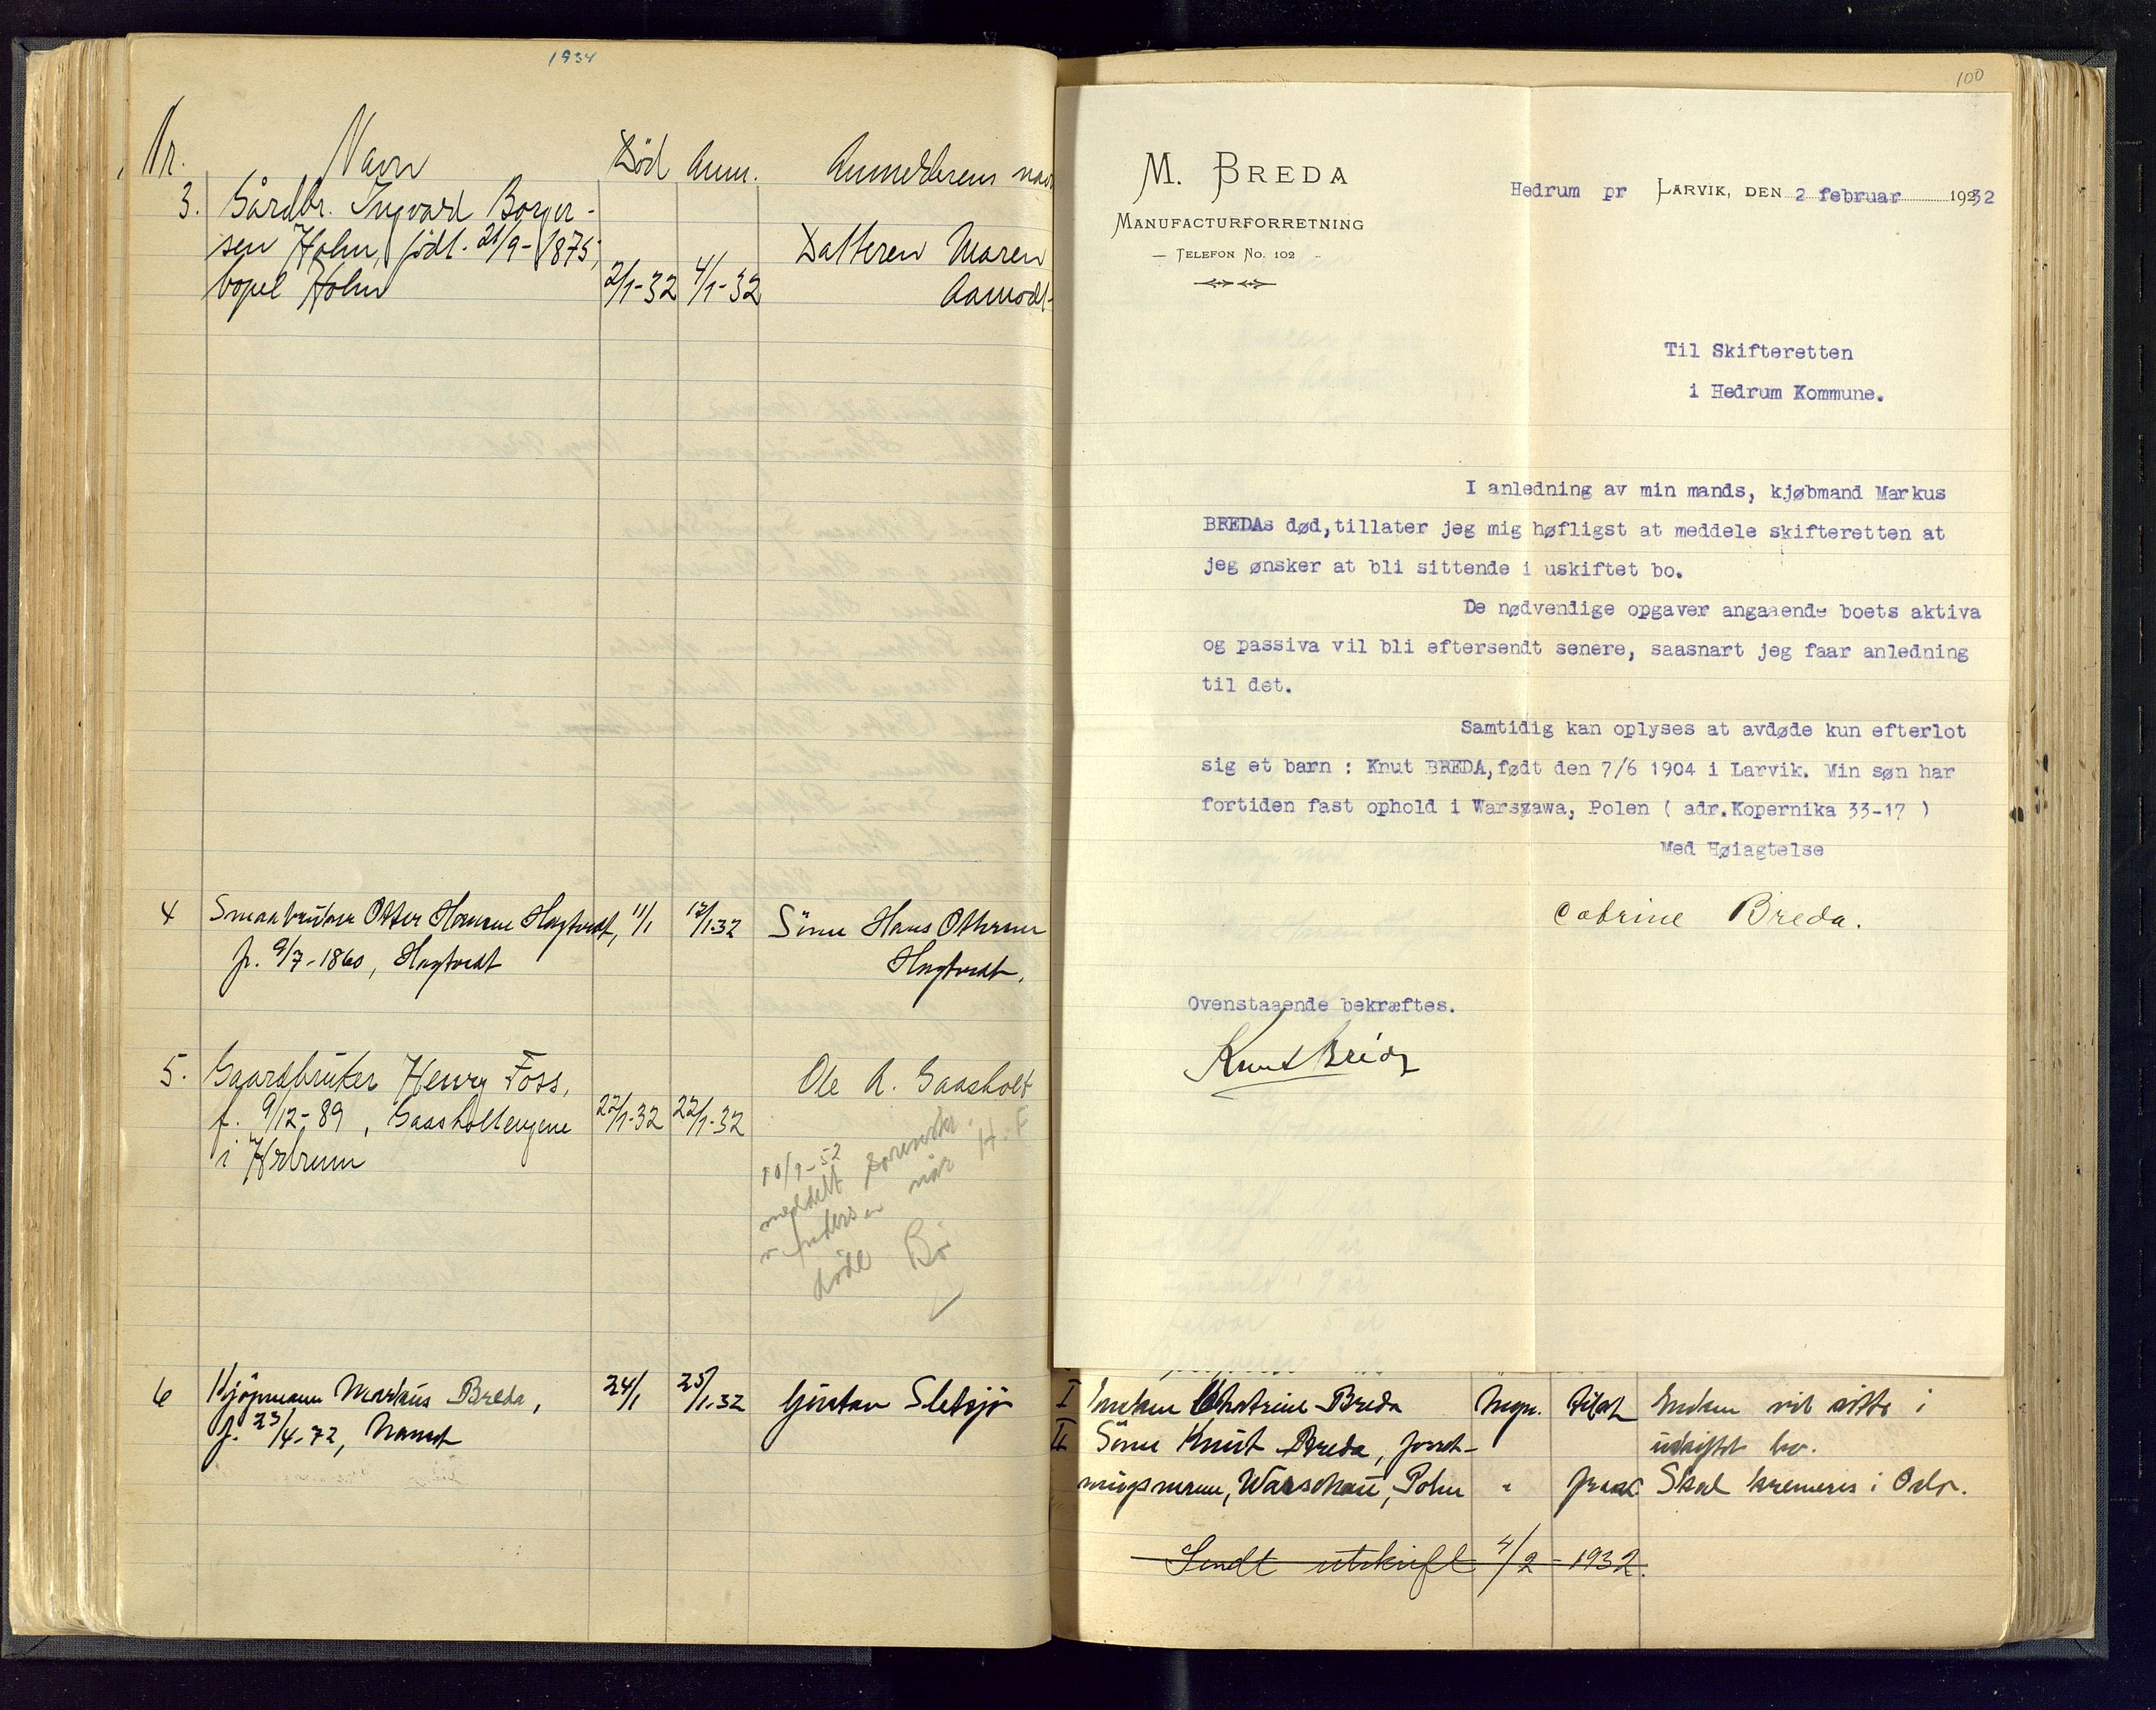 1934
Nr. Navn Död Anm. Anmelderens navn
3. Gårdbr. Ingvard Borger-
sen Holm, födt. 21/9-1875,
bopel Holm 2/1-32 4/1-32
Datteren Maren
Aamodt
4 Smaabruker Otter Hansen Hagtvedt, 11/1 12/1-32 Sönn Hans Ottersen
f. 9/7-1860, Hagtvedt Hagtvedt.
5. Gaardbruker Henry Foss, Ole A. Gaasholt
f. 9/12-89, Gaasholtengene 22/1-32 22/1-32
i Hedrum
10/9-52
meddelt sorenskr.
v. Andersen når H. F
döde Bö
6 Kjöpmann Markus Breda, 24/1 25/1.32 Gustav Sletsjö
f. 23/4-72, Nanset
100
M. BREDA
MANUFACTURFORRETNING
— TELEFON No. 102 —
Hedrum pr LARVIK, DEN 2 februar 1932
Til Skifteretten
i Hedrum Kommune.
I anledning av min mands, kjøbmand Markus
BREDAs død,tillater jeg mig høfligst at meddele skifteretten at
jeg ønsker at bli sittende i uskiftet bo.
De nødvendige opgaver angaaende boets aktiva
og passiva vil bli eftersendt senere, saasnart jeg faar anledning
til det.
Samtidig kan oplyses at avdøde kun efterlot
sig et barn : Knut BREDA,født den 7/6 1904 i Larvik. Min søn har
fortiden fast ophold i Warszawa, Polen ( adr.Kopernika 33-17 )
Med Høiagtelse
Catrine Breda.
Ovenstaaende bekræftes.
Knut Breda
I Enken Chatrine Breda Myn. tilst. Enken vil sitte i
II Sönn Knut Breda, forret- uskiftet bo.
ningsmann, Warschau, Polen " frav. Skal kremeres i Oslo.
Sendt utskrift 4/2-1932.